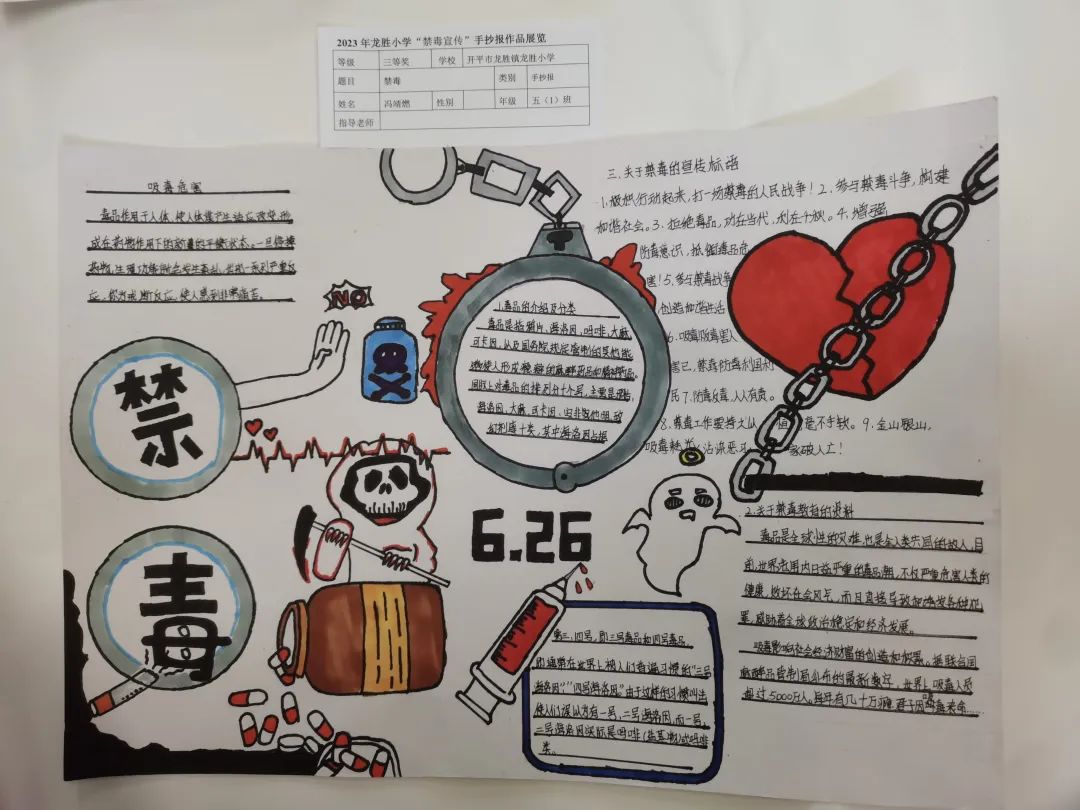 2023 年龙胜小学“禁毒宣传”手抄报作品展览
等级 三等奖 学校 开平市龙胜镇龙胜小学
题目 禁毒 类别 手抄报
姓名 冯靖燃 性别 年级 五（1）班
指导老师
吸毒危害
毒品作用于人体,使人体
成在药物作用下的 平衡状态。一旦
药物,生理功能就会发生紊乱,出现一系列严重反
应,称为戒断反应,使人感到非常痛苦。
NO
禁
毒
6.26
1.毒品的介绍及分类
毒品是指鸦片、海洛因、吗啡、大麻、
可卡因,以及国务院规定管制的其他能
够使人形成瘾癖的麻醉药品和精神药品。
海洛因、大麻、可卡因、
三.关于禁毒的宣传标语
1.积极行动起来,打一场禁毒的人民战争!2.参与禁毒斗争,构建
和谐社会。3.拒绝毒品,功在当代,利在千秋。4.增强
防毒意识,抵制毒品危
害!5.参与禁毒战争
创造和谐生活
6.吸毒贩毒害人
害己,禁毒防毒利国利
民7.防毒反毒,人人有责。
8.禁毒工作要持之 恒 是不手软。9.金山银山,
吸毒 沾染恶习 家破人亡!
2.关于禁毒教育的资料
毒品是全球性的灾难,也是全人类共同的敌人,目
前,世界范围内日益严重的毒品潮,不仅严重危害人类的
健康,败坏社会风气,而且直接导致和诱发各种犯
罪,威胁着全球政治稳定和经济发展。
吸毒影响社会经济财富的创造和积累,据联合国
麻醉药品管制局公布的最新数字,世界上吸毒人员
超过5000万人,每年有几十万瘾君子因吸毒丧命……
第三.四号,即三号毒品和四号毒品
的通常在世界上被人们普遍习惯的“三号
海洛因”“四号海洛因。”由于这样的习惯叫法
使人们误以为有一号,二号海洛因,而一号、
二号海洛因实际是吗啡(盐基物)或吗啡
类。